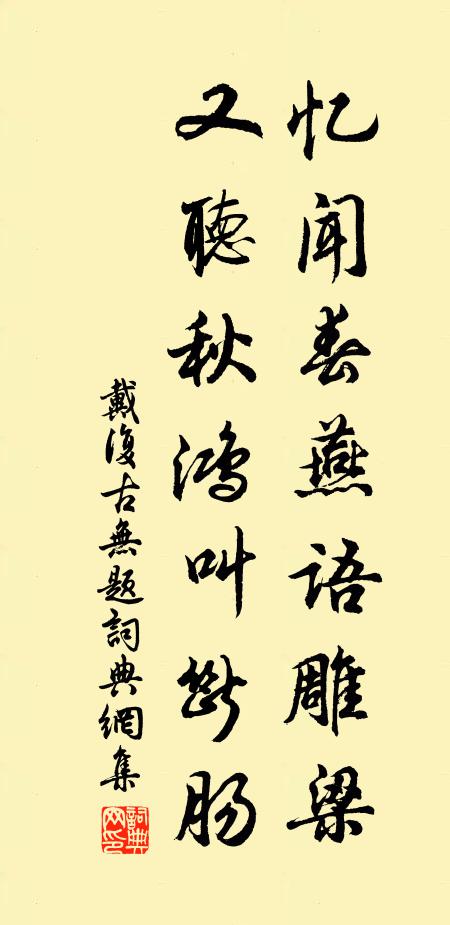 忆闻春燕语雕梁
又聽秋鴻叫斷肠
戴復古無题詞典網集
詞典网印